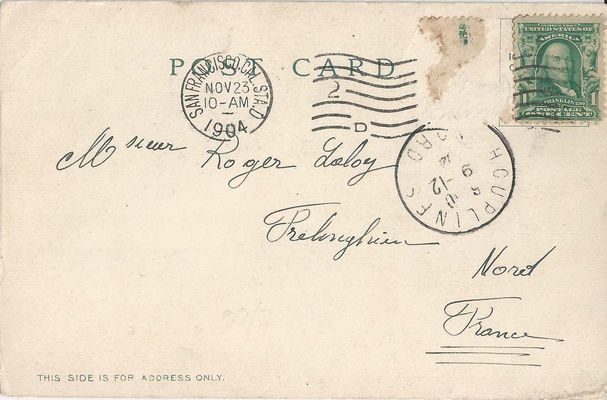 POST CARD
SAN FRANCISCO, CAL. STA. D
NOV 23
10-AM
1904
2
D
SERIES 1902
UNITED STATES OF
AMERICA
FRANKLIN
1
POSTAGE
ONE CENT
HOUPLINES
9-12
NORD
Msieur Roger Laloy
Frelinghien
Nord
France
THIS SIDE IS FOR ADDRESS ONLY.